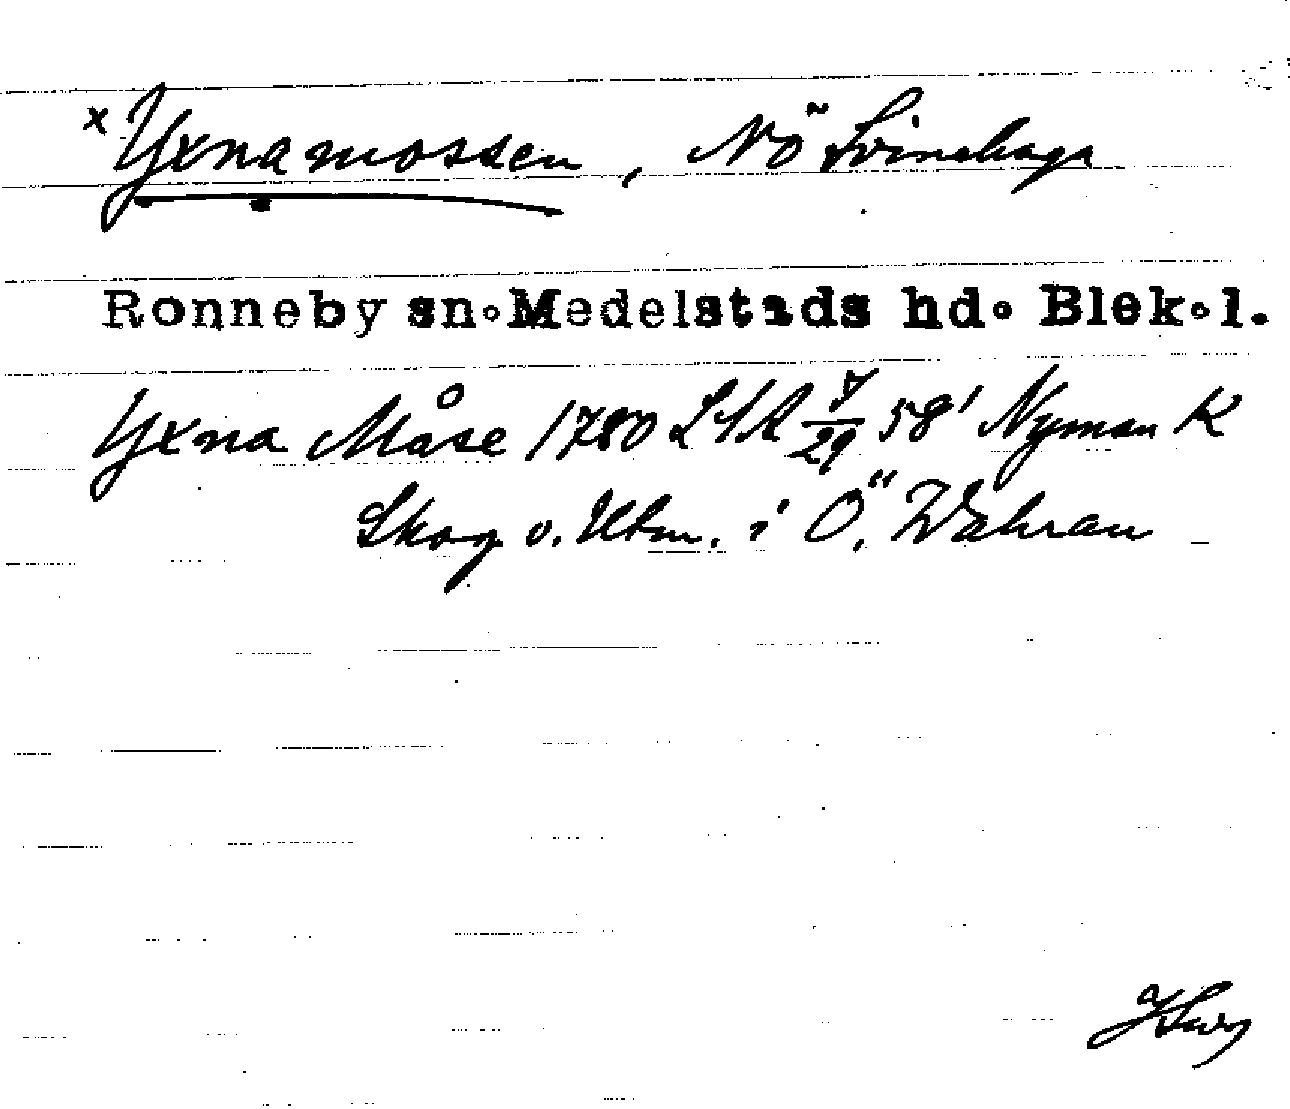 x Yxnamossen, NÖ Svinehaga
Ronneby sn. Medelstads hd. Blek.l.
Yxna Måse 1780 LSA 7/29 58' Nyman K
Skog o. Utm. i Ö. Wåhran